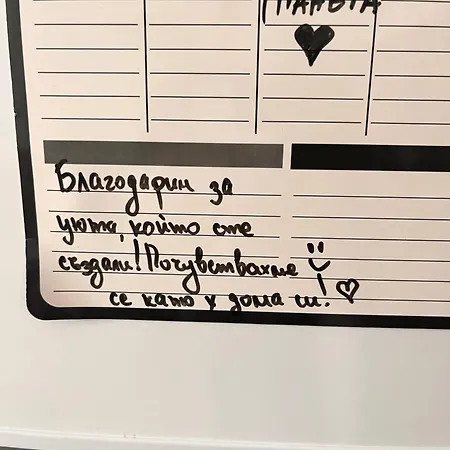 ПАНЬТА
Благодарим за
уюта, който сте
създали! Почувствахме
се като у дома си.